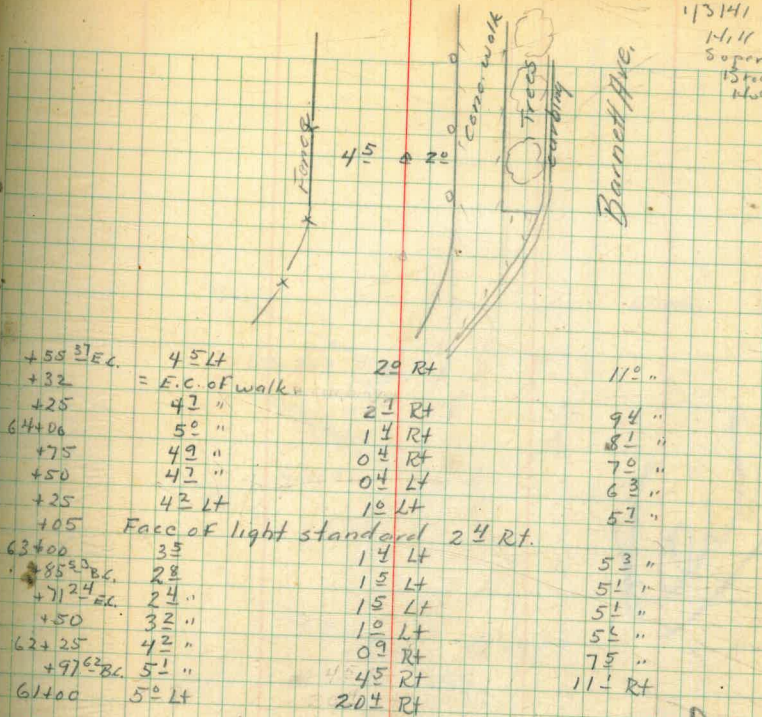 1/3/41
Hill
Fence
Conc. walk
Trees
curbing
Barnett Ave.
4 5 2 0
+55 37 E.C. 4 5 Lt 2 0 Rt 11 0 "
+32 = E.C. of walk
+25 4 7 " 2 1 Rt 9 4 "
64+00 5 0 " 1 4 Rt 8 1 "
+75 4 9 " 0 4 Rt 7 0 "
+50 4 7 " 0 4 Lt 6 3 "
+25 4 2 Lt 1 0 Lt 5 7 "
+05 Face of light standard 2 4 Rt.
63+00 3 5 1 4 Lt 5 3 "
+85 53 B.C. 2 8 1 5 Lt 5 1 "
+71 24 E.C. 2 4 " 1 5 Lt 5 1 "
+50 3 2 " 1 0 Lt "
62+25 4 2 " 0 9 Rt 7 5 "
+97 62 B.C. 5 1 " 4 5 Rt 11 1 Rt
61+00 5 0 Lt 20 4 Rt